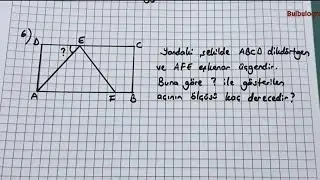 Bulbulogretmen
6)
D E C
?
A F B
Yandaki şekilde ABCD dikdörtgen
ve AFE eşkenar üçgendir.
Buna göre ? ile gösterilen
açının ölçüsü kaç derecedir?